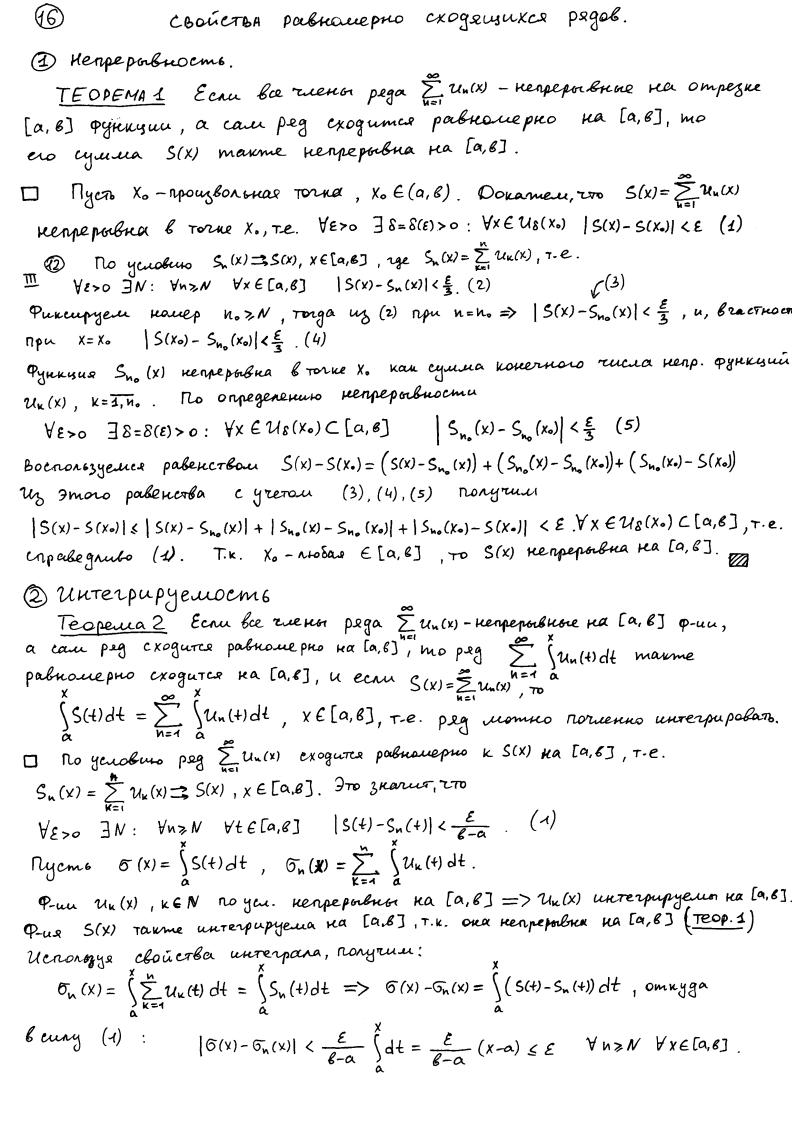 16 Свойства равномерно сходящихся рядов.
① Непрерывность.
ТЕОРЕМА 1 Если все члены ряда ∑_{n=1}^{∞} Uₙ(x) – непрерывные на отрезке
[a, b] функции, а сам ряд сходится равномерно на [a, b], то
его сумма S(x) также непрерывна на [a, b].
□ Пусть x₀ – произвольная точка, x₀ ∈ (a, b). Докажем, что S(x) = ∑_{n=1}^{∞} Uₙ(x)
непрерывна в точке x₀, т.е. ∀ε>0 ∃δ=δ(ε)>0 : ∀x∈U_δ(x₀) |S(x)-S(x₀)|<ε (1)
По условию Sₙ(x)⇉S(x), x∈[a,b], где Sₙ(x)=∑_{k=1}^{n} Uₖ(x), т.е.
III ∀ε>0 ∃N: ∀n≥N ∀x∈[a,b] |S(x)-Sₙ(x)|<ε/3. (2) (3)
Фиксируем номер n₀≥N, тогда из (2) при n=n₀ => |S(x)-S_{n₀}(x)|<ε/3, и, в частност
при x=x₀ |S(x₀)-S_{n₀}(x₀)|<ε/3. (4)
Функция S_{n₀}(x) непрерывна в точке x₀ как сумма конечного числа непр. функций
Uₖ(x), k=1,n₀. По определению непрерывности
∀ε>0 ∃δ=δ(ε)>0: ∀x∈U_δ(x₀)⊂[a,b] |S_{n₀}(x)-S_{n₀}(x₀)|<ε/3 (5)
Воспользуемся равенством S(x)-S(x₀)=(S(x)-S_{n₀}(x))+(S_{n₀}(x)-S_{n₀}(x₀))+(S_{n₀}(x₀)-S(x₀))
Из этого равенства с учетом (3), (4), (5) получим
|S(x)-S(x₀)|≤|S(x)-S_{n₀}(x)|+|S_{n₀}(x)-S_{n₀}(x₀)|+|S_{n₀}(x₀)-S(x₀)|<ε. ∀x∈U_δ(x₀)⊂[a,b], т.е.
справедливо (1). Т.к. x₀ – любая ∈[a,b], то S(x) непрерывна на [a,b].
② Интегрируемость
Теорема 2 Если все члены ряда ∑_{n=1}^{∞} Uₙ(x) – непрерывные на [a,b] ф-ии,
а сам ряд сходится равномерно на [a,b], то ряд ∑_{n=1}^{∞} ∫ₐˣ Uₙ(t)dt также
равномерно сходится на [a,b], и если S(x)=∑_{n=1}^{∞} Uₙ(x), то
∫ₐˣ S(t)dt = ∑_{n=1}^{∞} ∫ₐˣ Uₙ(t)dt, x∈[a,b], т.е. ряд можно почленно интегрировать.
□ По условию ряд ∑_{n=1}^{∞} Uₙ(x) сходится равномерно к S(x) на [a,b], т.е.
Sₙ(x)=∑_{k=1}^{n} Uₖ(x)⇉S(x), x∈[a,b]. Это значит, что
∀ε>0 ∃N: ∀n≥N ∀t∈[a,b] |S(t)-Sₙ(t)|<ε/(b-a). (1)
Пусть σ(x)=∫ₐˣ S(t)dt, σₙ(x)=∑_{k=1}^{n} ∫ₐˣ Uₖ(t)dt.
Ф-ии Uₖ(x), k∈N по усл. непрерывны на [a,b] => Uₖ(x) интегрируемы на [a,b].
Ф-ия S(x) также интегрируема на [a,b], т.к. она непрерывна на [a,b] (теор.1)
Используя свойства интеграла, получим:
σₙ(x)=∫ₐˣ ∑_{k=1}^{n} Uₖ(t)dt=∫ₐˣ Sₙ(t)dt => σ(x)-σₙ(x)=∫ₐˣ (S(t)-Sₙ(t))dt, откуда
в силу (1): |σ(x)-σₙ(x)|<ε/(b-a) ∫ₐˣ dt=ε/(b-a) (x-a)≤ε ∀n≥N ∀x∈[a,b].